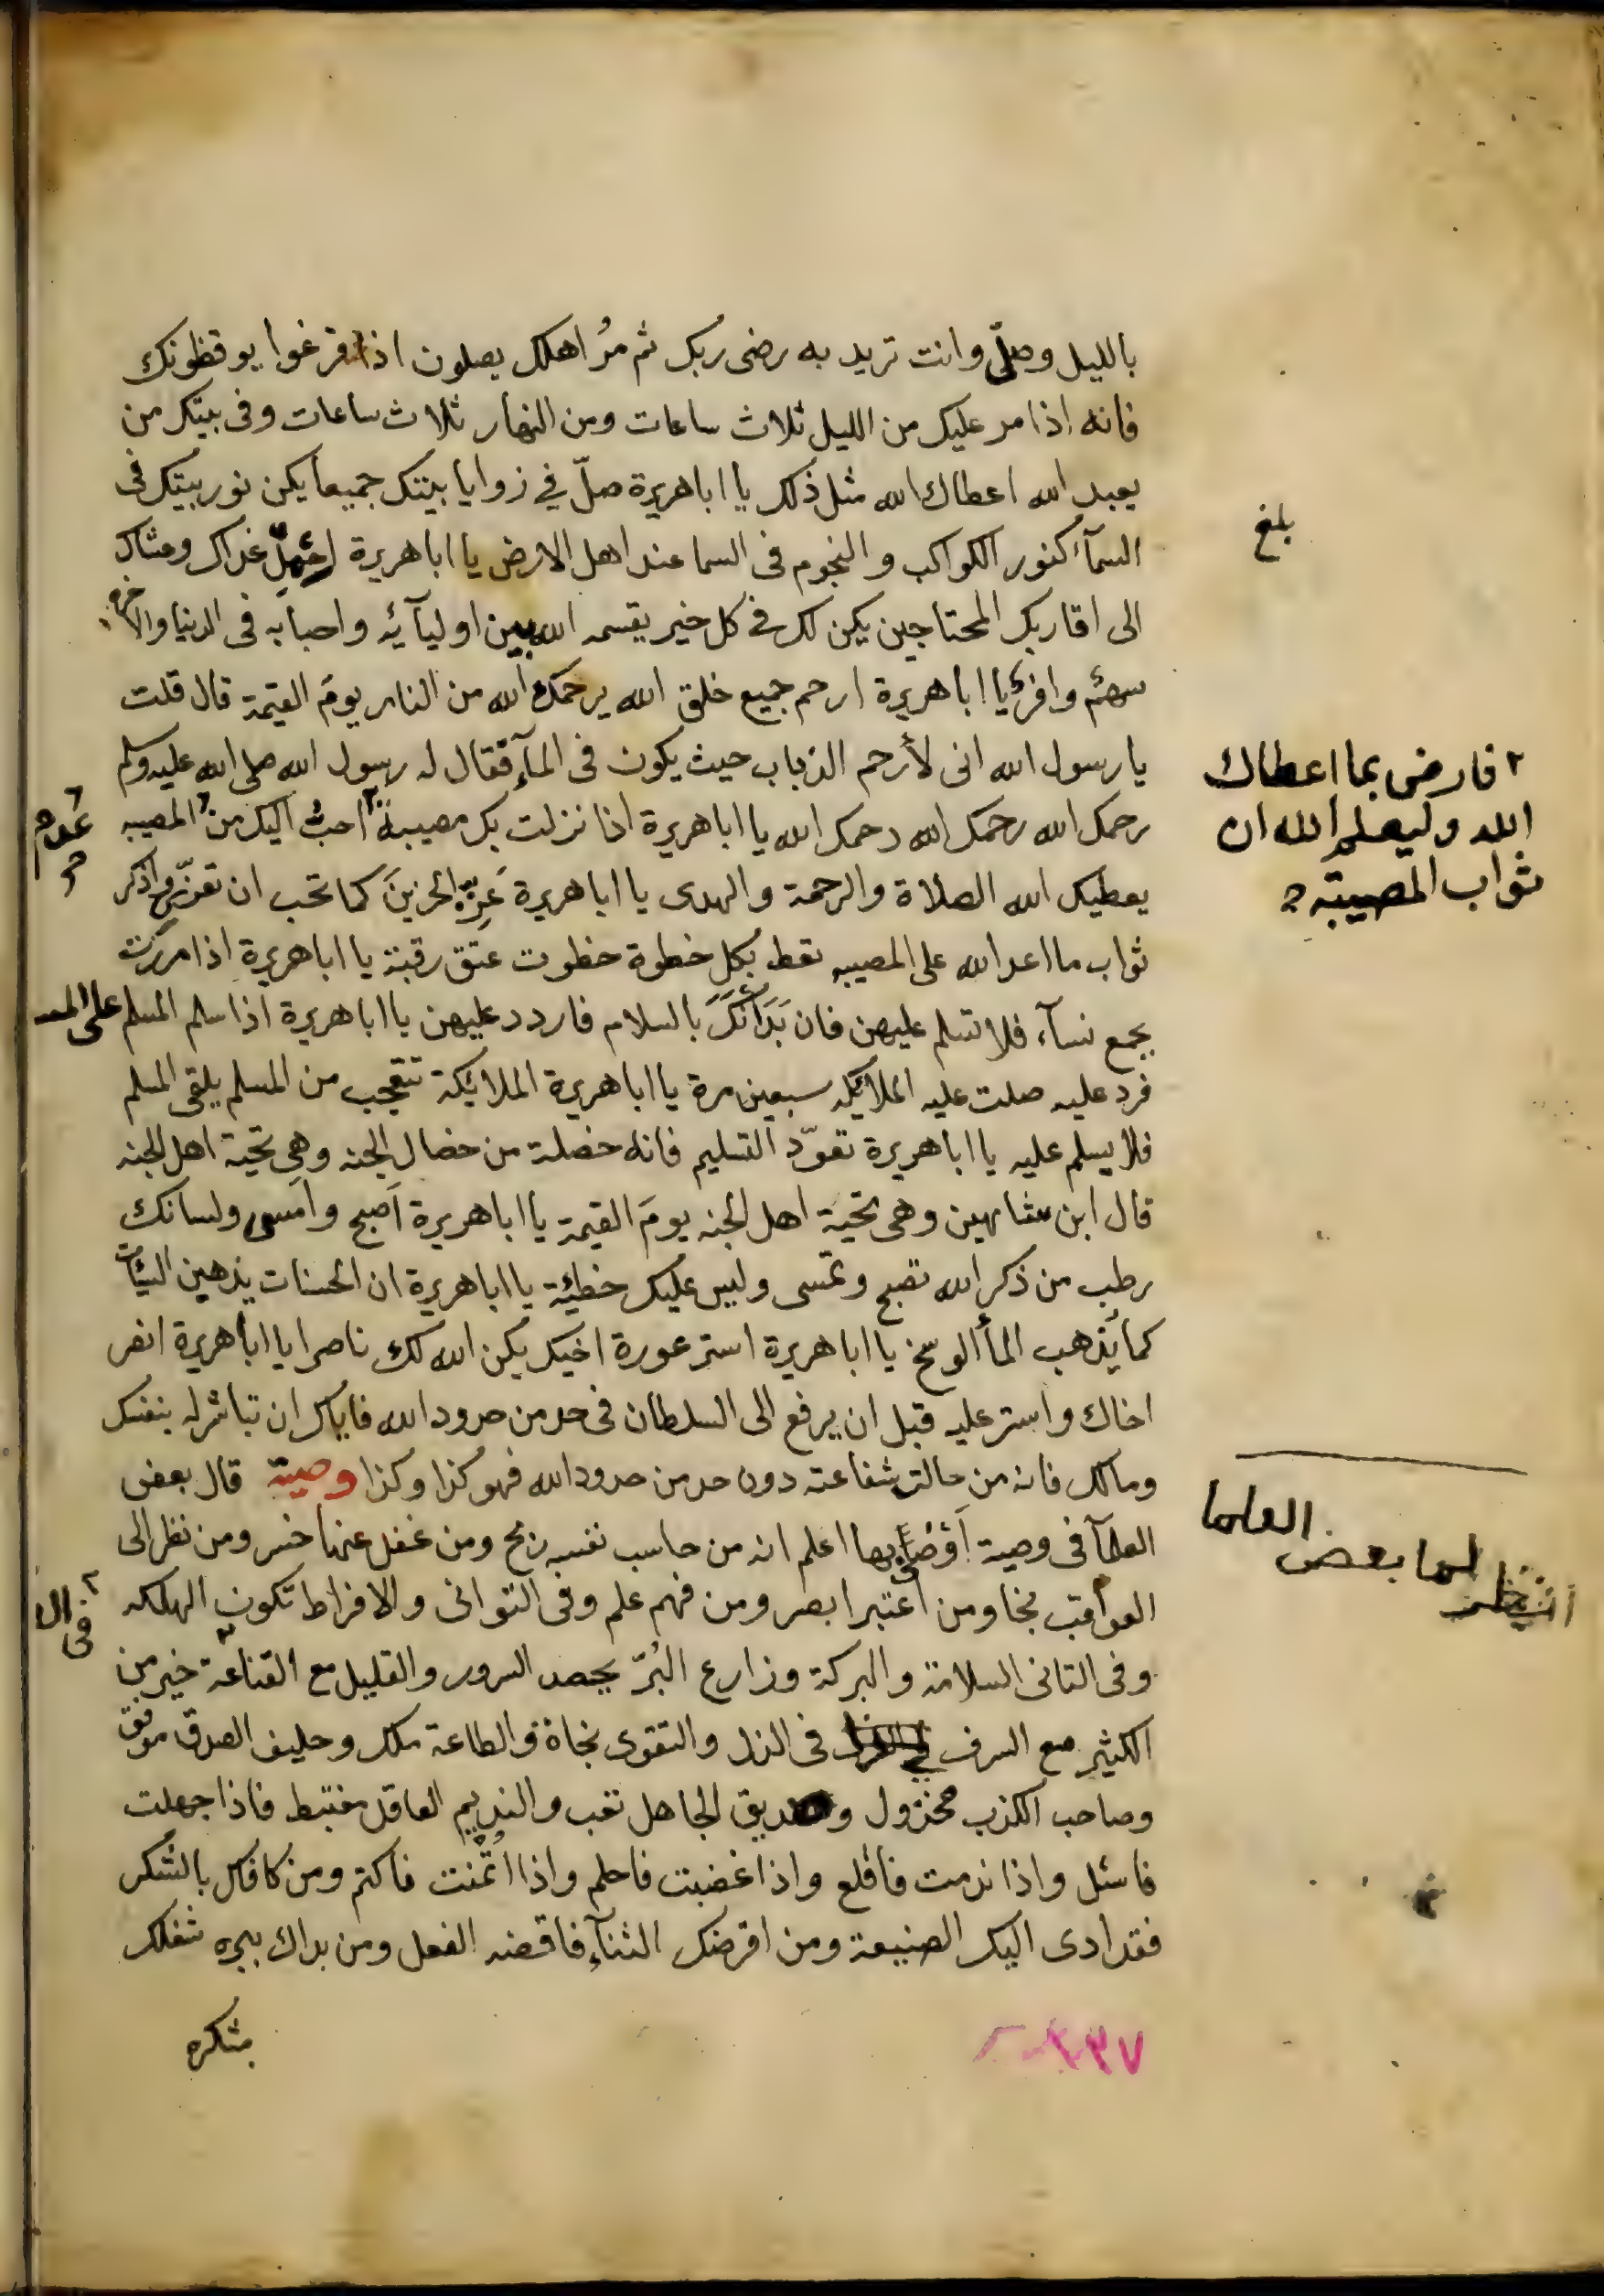 بالليل وصلّ وانت تريد به رضى ربك ثم مُر اهلك يصلون اذا فرغوا يوقظونك
فانه اذا مر عليك من الليل ثلاث ساعات ومن النهار ثلاث ساعات وفى بيتك من
يعبد الله اعطاك الله مثل ذلك يا اباهريرة صلّ في زوايا بيتك جميعا يكن نور بيتك فى
بلغ
السمآء كنور الكواكب والنجوم فى السما عند اهل الارض يا اباهريرة غداك وعشاك
الى اقاربك المحتاجين يكن لك فى كل خير يقسمه الله بين اوليآئه واحبابه فى الدنيا والاخره
سهم وافر يا اباهريرة ارحم جميع خلق الله يرحمك الله من النار يومَ القيمة قال قلت
يا رسول الله انى لأرحم الذباب حيث يكون فى المآء فقال له رسول الله صلى الله عليه وسلم
٢ فارض بما اعطاك
الله وليعلم الله ان
ثواب المصيبة
رحمك الله رحمك الله رحمك الله يا اباهريرة اذا نزلت بك مصيبة احب اليك من المصيبه
يعطيك الله الصلاة والرحمة والهدى يا اباهريرة عَزِّ الحزينَ كما تحب ان تعزّى واذكر
ثواب ما اعد الله على المصيبه تعط بكل خطوة خطوت عتق رقبة يا اباهريرة اذا مررت
بجمع نسآء فلا تسلم عليهن فان بَدَأنَكَ بالسلام فاردد عليهن يا اباهريرة اذا سلم المسلم على المسلم
فرد عليه صلت عليه الملائكه سبعين مرة يا اباهريرة الملائكة تتعجب من المسلم يلقى المسلم
فلا يسلم عليه يا اباهريرة تعوّد التسليم فانه خصلة من خصال الجنه وهى تحية اهل الجنه
قال ابن شاهين وهى تحية اهل الجنه يومَ القيمة يا اباهريرة اصبح وامسى ولسانك
رطب من ذكر الله تصبح وتمسى وليس عليك خطيئة يا اباهريرة ان الحسنات يذهبن السيئات
كما يُذهب المأ الوسخ يا اباهريرة استر عورة اخيك يكن الله لك ناصرا يا اباهريرة انصر
اخاك واستر عليه قبل ان يرفع الى السلطان فى حد من حدود الله فاياك ان تباشر له بنفسك
ومالك فانه من حالت شفاعته دون حد من حدود الله فهو كذا وكذا وصية قال بعض
العلمآ فى وصية اَوْصَى بها اعلم انه من حاسب نفسه ربح ومن غفل عنها خسر ومن نظر الى
بعض العلما
العواقب نجا ومن اعتبر ابصر ومن فهم علم وفى التوانى والافراط تكون الهلكه
وفى التانى السلامة والبركة وزارع البُرّ يحصد السرور والقليل مع القناعة خير من
الكثير مع السرف فى الذل والتقوى نجاة والطاعة ملك وحليف الصدق موفق
وصاحب الكذب مخذول وصديق الجاهل تعب والنديم العاقل مغتبط فاذا جهلت
فاسئل واذا ندمت فاقلع واذا غضبت فاحلم واذا ائتُمنت فاكتم ومن كافاك بالشكر
فقد ادى اليك الصنيعة ومن اقرضك الثنآء فاقضه الفعل ومن بداك ببره شغلك
بشكره